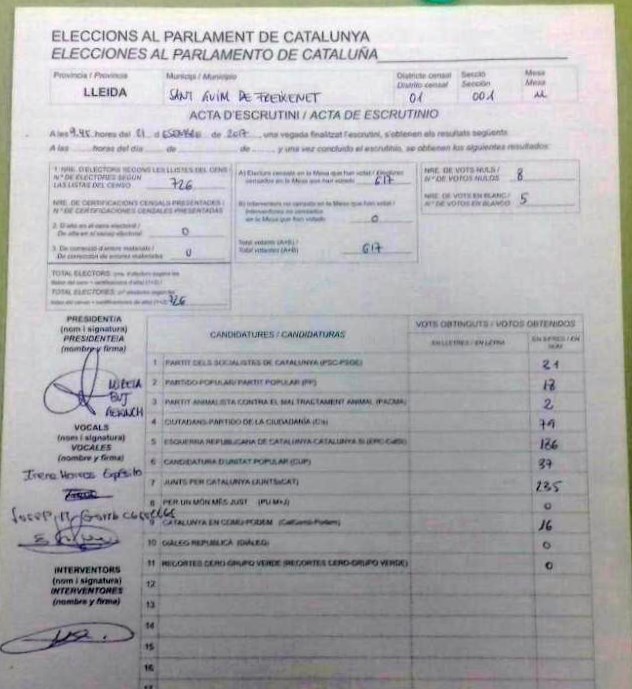 ELECCIONS AL PARLAMENT DE CATALUNYA
ELECCIONES AL PARLAMENTO DE CATALUÑA
Província / Provincia
LLEIDA
Municipi / Municipio
SANT GUIM DE FREIXENET
Districte censal
Distrito censal
01
Secció
Sección
001
Mesa
Mesa
U
ACTA D'ESCRUTINI / ACTA DE ESCRUTINIO
A les 9.45 hores del 21 d DESEMBRE de 2017, una vegada finalitzat l'escrutini, s'obtenen els resultats següents:
A las hores del día de de , y una vez concluido el escrutinio, se obtienen los siguientes resultados:
1. NRE. D'ELECTORS SEGONS LES LLISTES DEL CENS
N.º DE ELECTORES SEGÚN
LAS LISTAS DEL CENSO 726
NRE. DE CERTIFICACIONS CENSALS PRESENTADES /
N.º DE CERTIFICACIONES CENSALES PRESENTADAS
2. D'alta en el cens electoral /
De alta en el censo electoral 0
3. De correcció d'errors materials /
De corrección de errores materiales 0
TOTAL ELECTORS
TOTAL ELECTORES 726
A) Electors censats en la Mesa que han votat / Electores
censados en la Mesa que han votado 617
B) Interventors no censats en la Mesa que han votat /
Interventores no censados
en la Mesa que han votado 0
Total votants (A+B) /
Total votantes (A+B) 617
NRE. DE VOTS NULS /
N.º DE VOTOS NULOS 8
NRE. DE VOTS EN BLANC /
N.º DE VOTOS EN BLANCO 5
PRESIDENT/A
(nom i signatura)
PRESIDENTE/A
(nombre y firma)
MIREIA
VOCALS
(nom i signatura)
VOCALES
(nombre y firma)
Irene
Josep M.
INTERVENTORS
(nom i signatura)
INTERVENTORES
(nombre y firma)
CANDIDATURES / CANDIDATURAS
VOTS OBTINGUTS / VOTOS OBTENIDOS
EN LLETRES / EN LETRA
EN XIFRES / EN
1 PARTIT DELS SOCIALISTES DE CATALUNYA (PSC-PSOE) 21
2 PARTIDO POPULAR/ PARTIT POPULAR (PP) 18
3 PARTIT ANIMALISTA CONTRA EL MALTRACTAMENT ANIMAL (PACMA) 2
4 CIUTADANS-PARTIDO DE LA CIUDADANÍA (C's) 79
5 ESQUERRA REPUBLICANA DE CATALUNYA-CATALUNYA SÍ (ERC-CatSí) 186
6 CANDIDATURA D'UNITAT POPULAR (CUP) 37
7 JUNTS PER CATALUNYA (JUNTSxCAT) 235
8 PER UN MÓN MÉS JUST (PUM+J) 0
9 CATALUNYA EN COMÚ-PODEM (CatComú-Podem) 16
10 DIÀLEG REPUBLICÀ (DIÀLEG) 0
11 RECORTES CERO-GRUPO VERDE (RECORTES CERO-GRUPO VERDE) 0
12
13
14
15
16
17